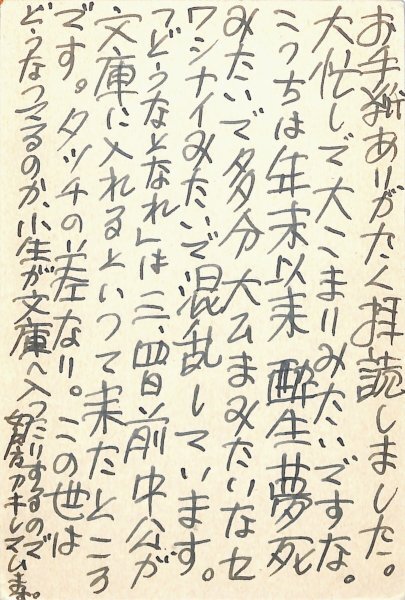 お手紙ありがたく拝読しました。
大忙しで大こまりみたいですな。
こっちは年末以来酔生夢死
みたいで多分大ムまみたいなセ
ワシナイみたいで混乱しています。
「どうなとなれ」は三、四日前中公が
文庫に入れるといって来たところ
です。タッチの差なり。この世は
どうなってるのか小生が文庫へ入ったりするので
アキレマいます。